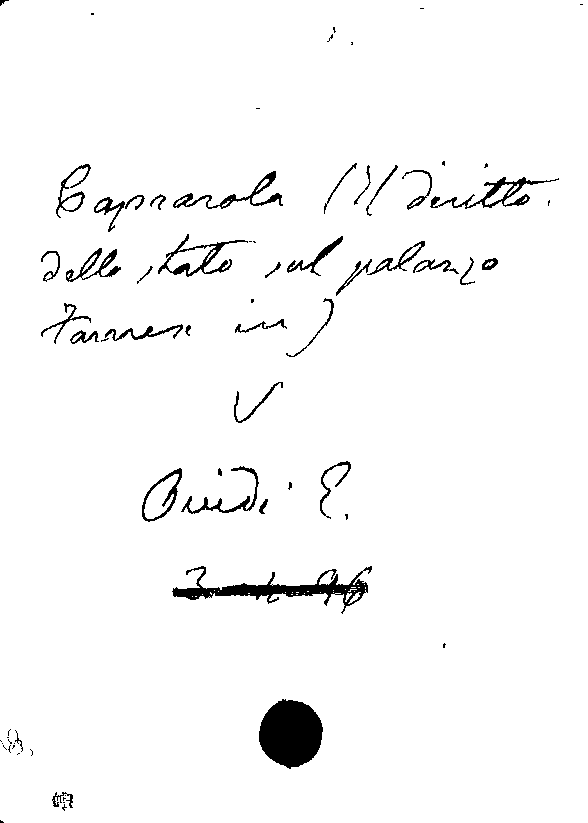 Caprarola (Il diritto
dello stato sul palazzo
Farnese in)
V
Guidi E.